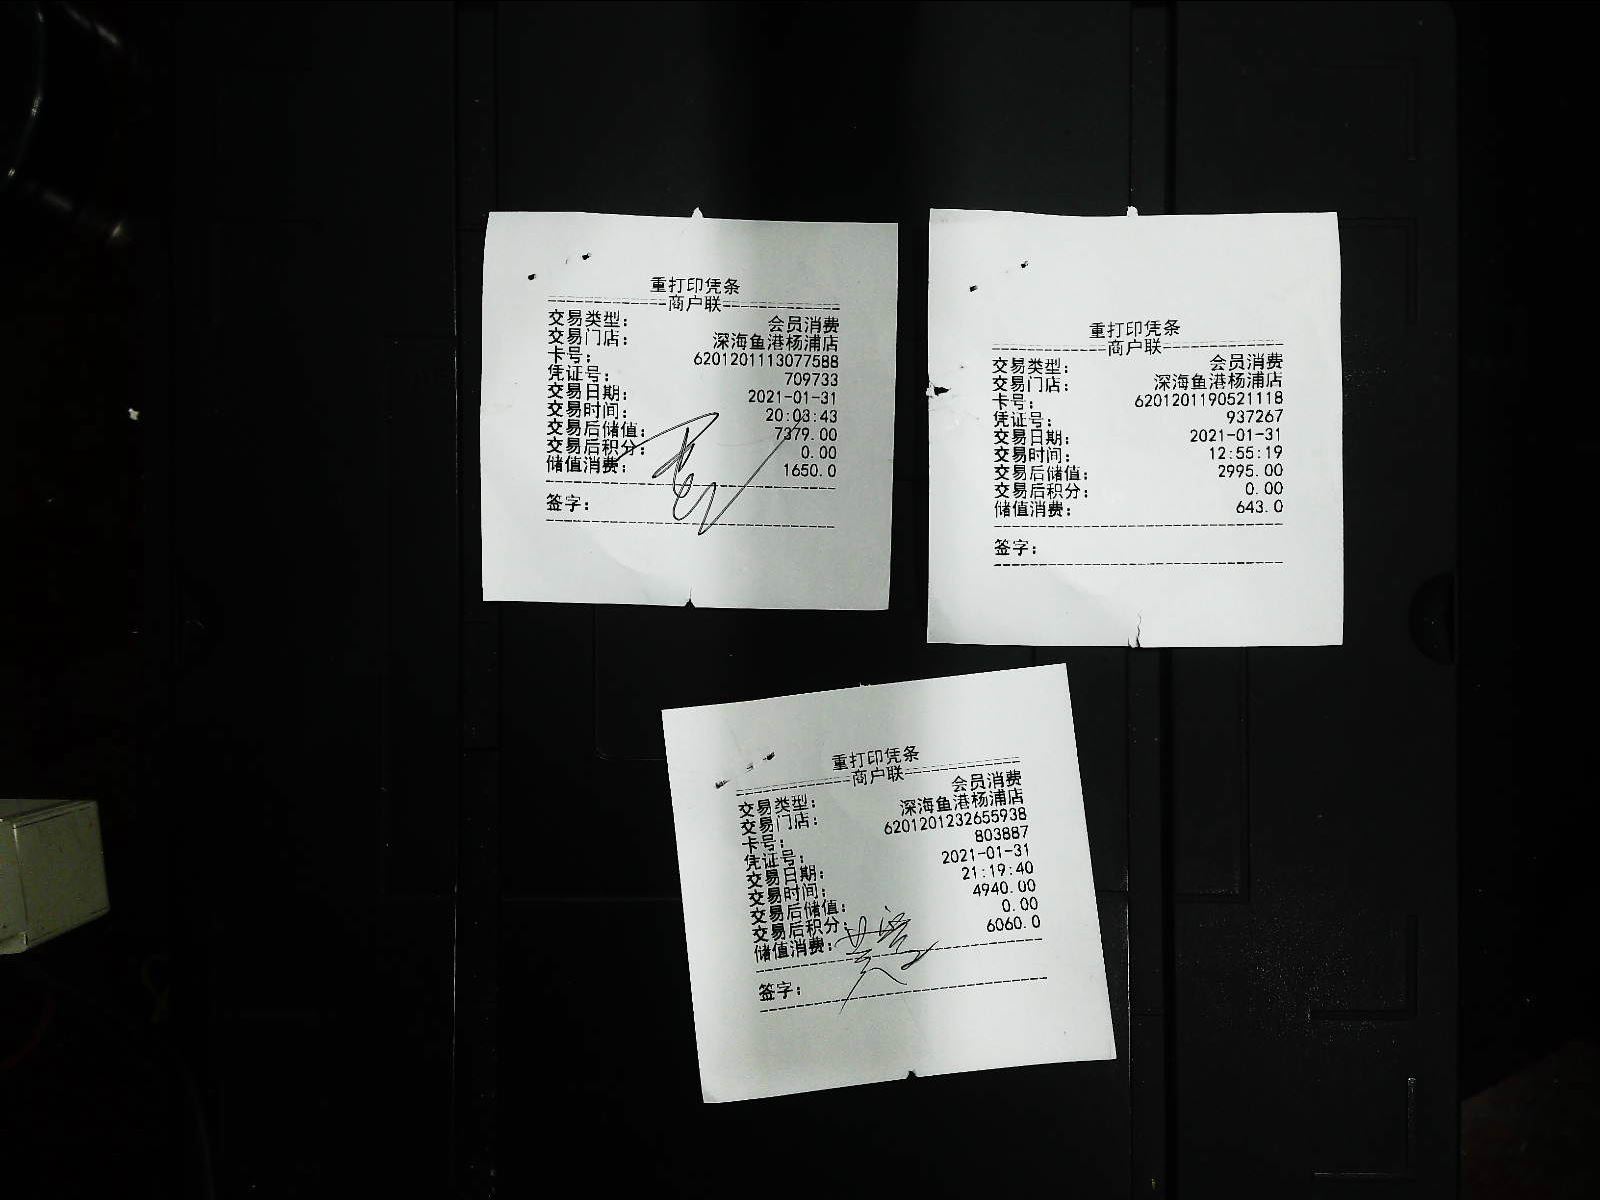 重打印凭条
商户联
交易类型： 会员消费
交易门店： 深海鱼港杨浦店
卡号： 6201201113077588
凭证号： 709733
交易日期： 2021-01-31
交易时间： 20:03:43
交易后储值： 7379.00
交易后积分： 0.00
储值消费： 1650.0
签字：
重打印凭条
商户联
交易类型： 会员消费
交易门店： 深海鱼港杨浦店
卡号： 6201201190521118
凭证号： 937267
交易日期： 2021-01-31
交易时间： 12:55:19
交易后储值： 2995.00
交易后积分： 0.00
储值消费： 643.0
签字：
重打印凭条
商户联
交易类型： 会员消费
交易门店： 深海鱼港杨浦店
卡号： 6201201232655938
凭证号： 803887
交易日期： 2021-01-31
交易时间： 21:19:40
交易后储值： 4940.00
交易后积分： 0.00
储值消费： 6060.0
签字：